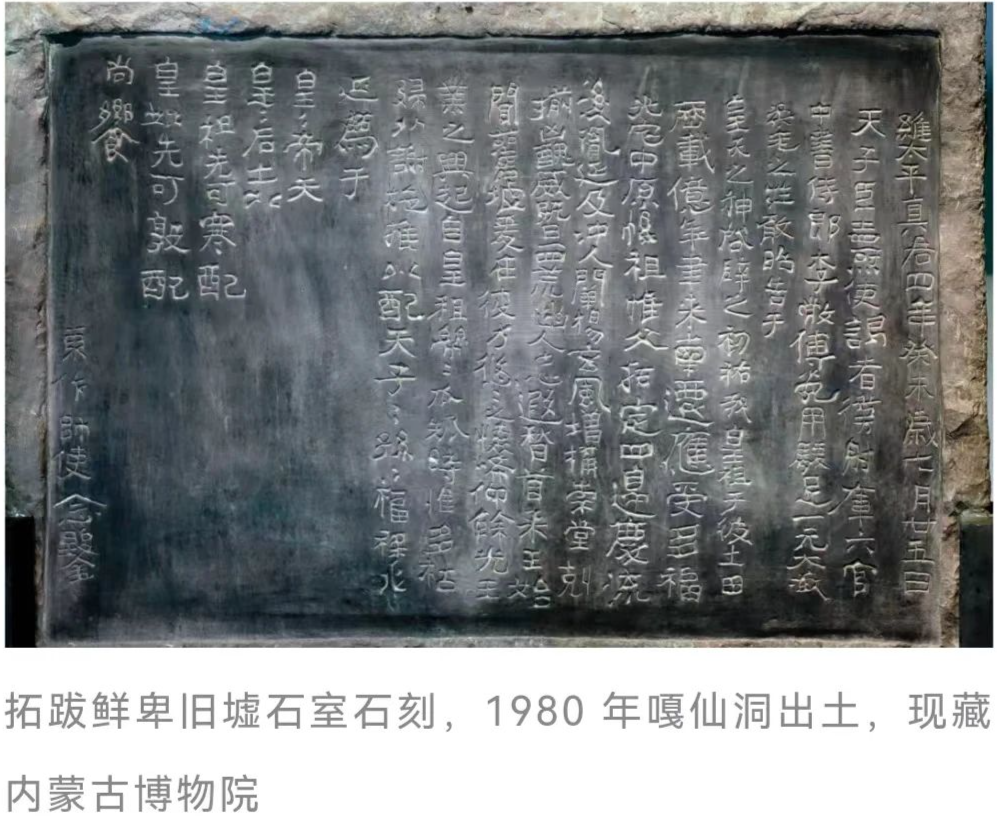 維太平真君四年癸未歲七月廿五日
天子臣燾使謁者僕射庫六官
中書侍郎李敞傅㝹用駿足一元大武
柔毛之牲敢昭告于
皇天之神啟辟之初祐我皇祖于彼土田
歷載億年聿來南遷應受多福
光宅中原惟祖惟父拓定四邊慶流
後胤延及沖人闡揚玄風增構崇堂剋
揃凶醜威暨四荒幽人忘遐稽首來王始
聞舊墟爰在彼方悠〻之懷希仰餘光王
業之興起自皇祖綿〻瓜瓞時惟多祜
歸以謝施推以配天子〻孫〻福祿永
延薦于
皇〻帝天
皇〻后土以
皇祖先可寒配
皇妣先可敦配
尚饗
東作帥使念鑿
拓跋鲜卑旧墟石室石刻，1980 年嘎仙洞出土，现藏
内蒙古博物院